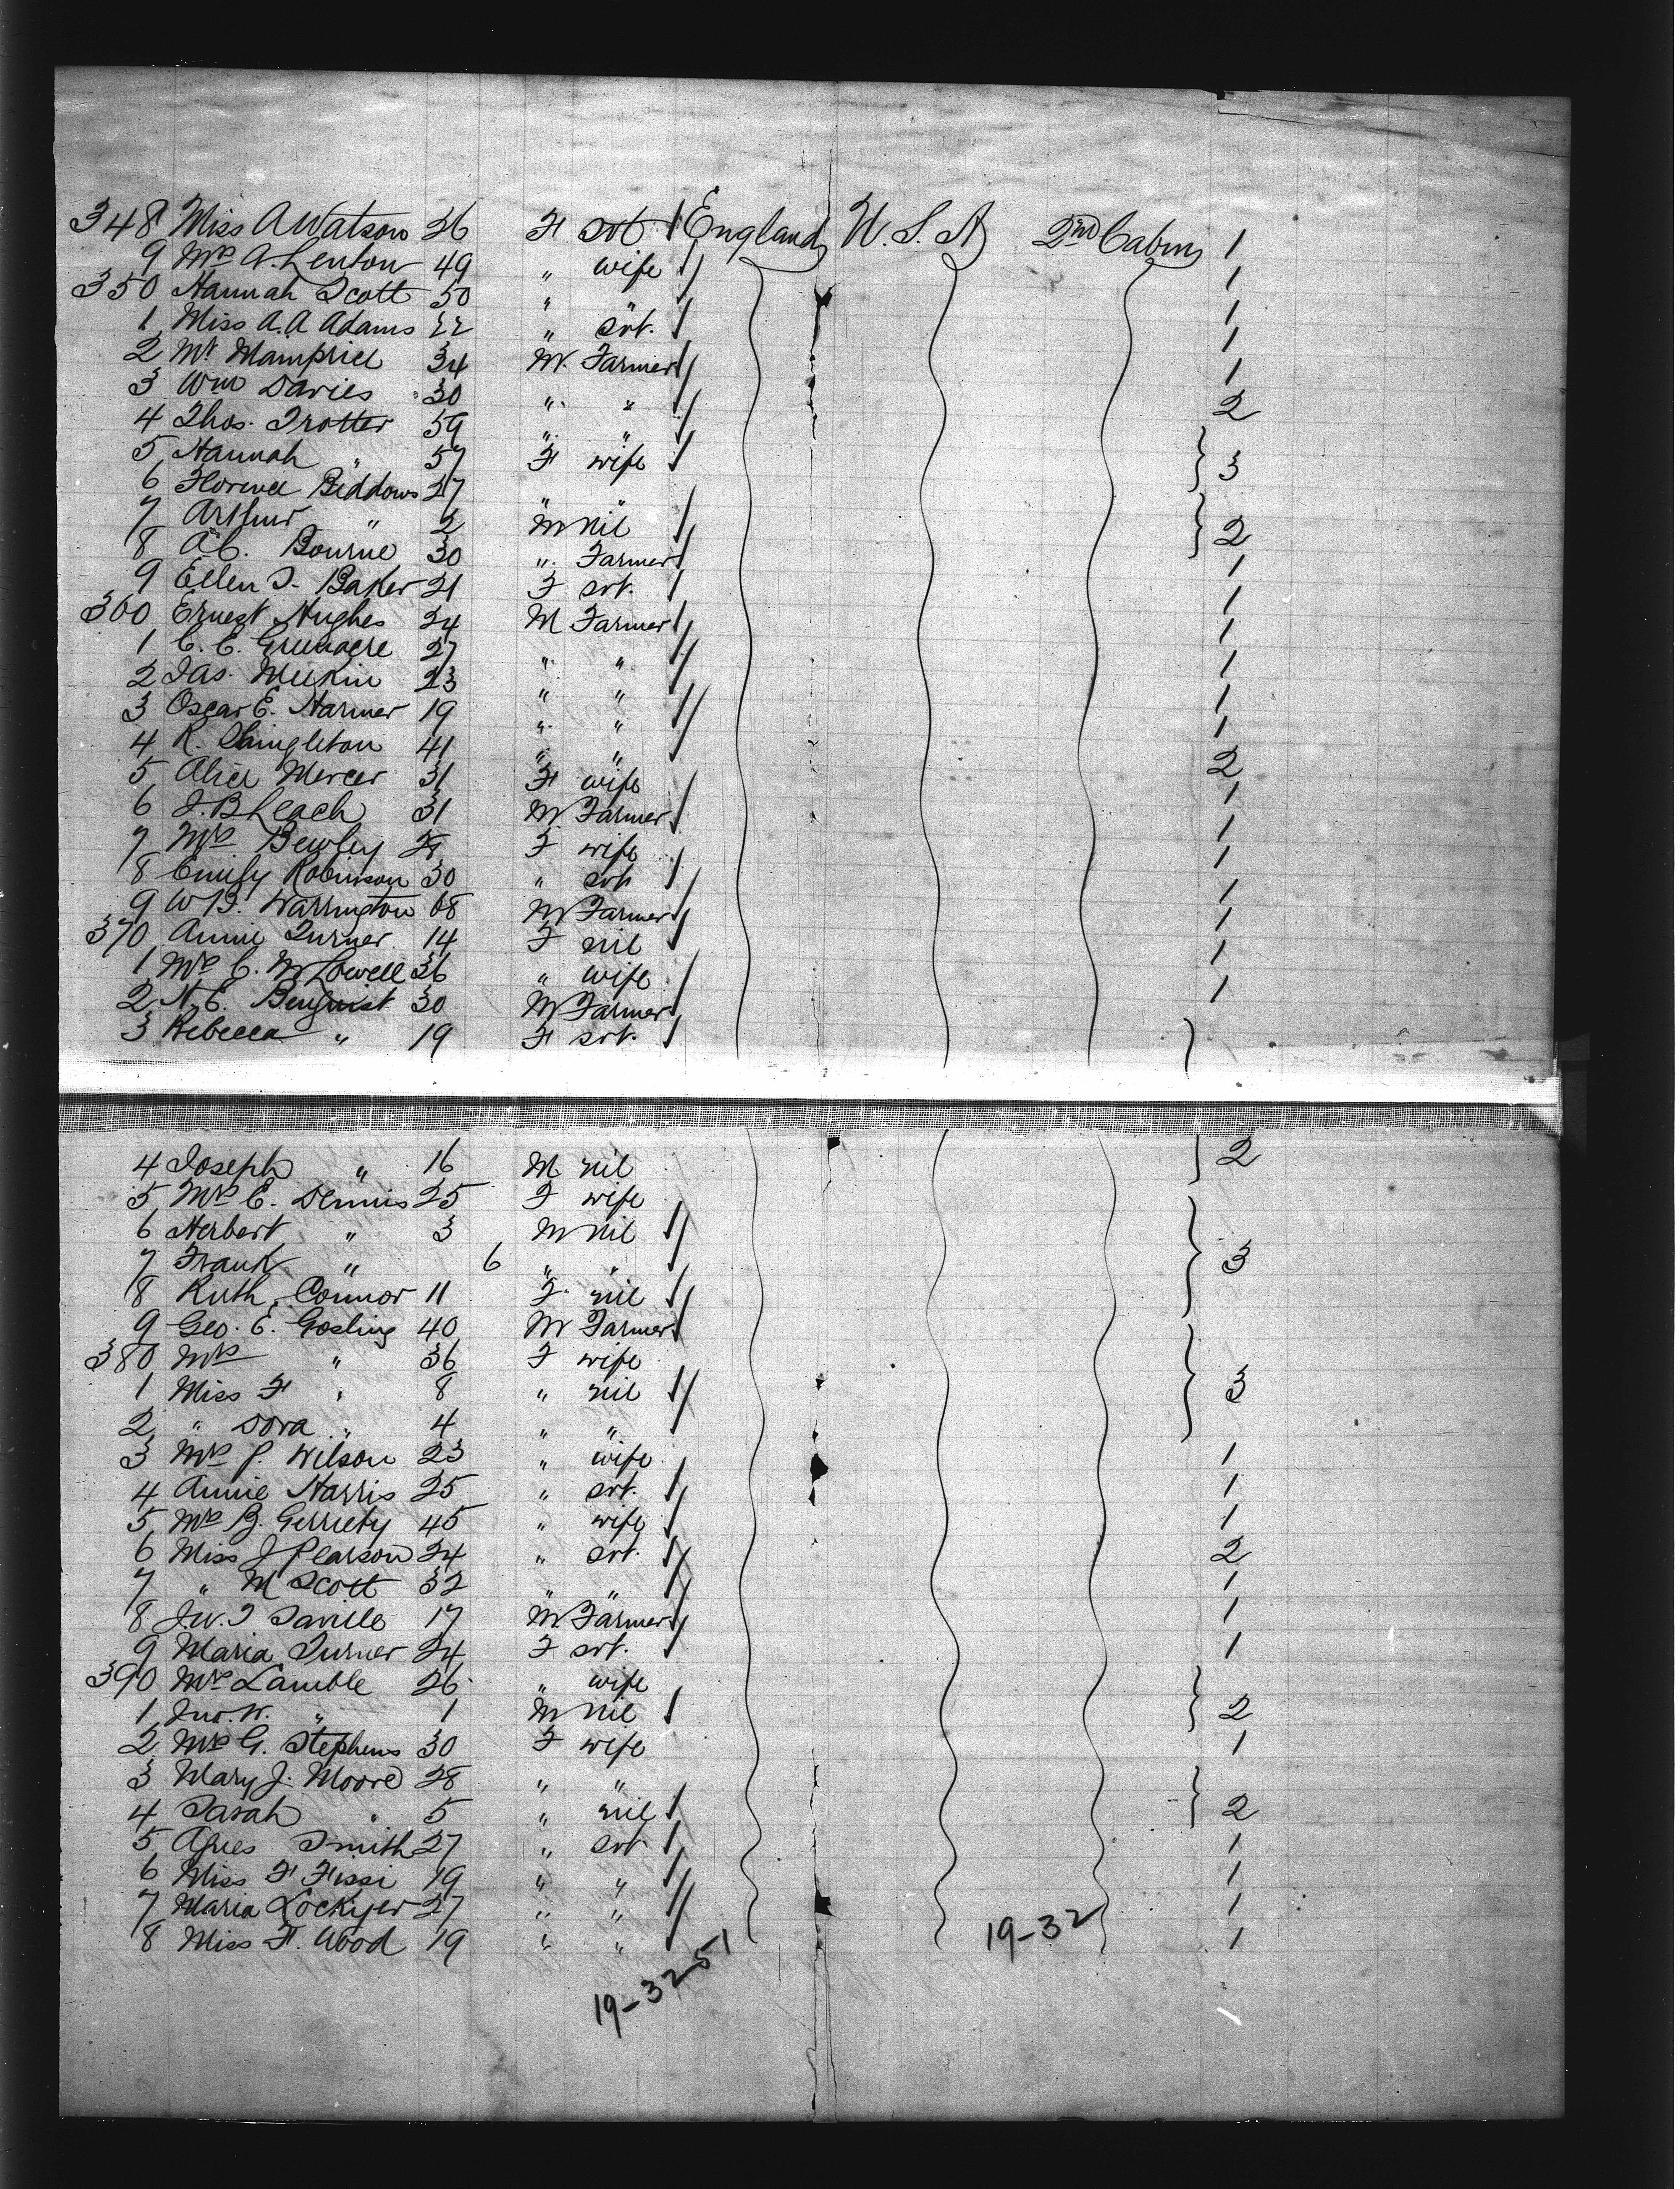 348 Miss A Watson 26 F svt England U.S.A 2nd Cabin 1
9 Mrs A. Lenton 49 " wife 1
350 Hannah Scott 50 " " 1
1 Miss A.A Adams 22 " svt. 1
2 Mr Mampriel 34 M. Farmer 1
3 Wm Davies 30 " " 2
4 Thos. Trotter 59 " "
5 Hannah " 57 F wife 3
6 Florence Beddows 27 " "
7 Arthur " 2 M nil 2
8 A.C. Bourne 30 " Farmer 1
9 Ellen T. Baker 21 F svt. 1
360 Ernest Hughes 24 M Farmer 1
1 C. E. Greenacre 27 " " 1
2 Jas. Meekin 23 " " 1
3 Oscar E. Harmer 19 " " 1
4 R. Shingleton 41 " " 2
5 Alice Mercer 31 F wife 1
6 J.B Leach 31 M Farmer 1
7 Mrs Bewley F wife 1
8 Emily Robinson 30 " svt 1
9 W B. Warrington 68 M Farmer 1
370 Annie Turner 14 F nil 1
1 Mrs C. M Lowell 36 " wife 1
2 N. E. Benquist 30 M Farmer
3 Rebecca " 19 F svt.
4 Joseph " 16 M nil 2
5 Mrs E. Dennis 25 F wife
6 Herbert " 3 M nil
7 Frank " 6 " " 3
8 Ruth Connor 11 F nil
9 Geo. E. Gosling 40 M Farmer
380 Mrs " 36 F wife
1 Miss F " 8 " nil 3
2 " Dora " 4 " "
3 Mrs P. Wilson 23 " wife 1
4 Annie Harris 25 " svt. 1
5 Mrs B. Gerriety 45 " wife 1
6 Miss J Pearson 24 " svt. 2
7 " M Scott 32 " " 1
8 J.W. T Saville 17 M Farmer 1
9 Maria Turner 24 F svt. 1
390 Mrs Lamble 26 " wife
1 Jno. W. " 1 M nil 2
2 Mrs G. Stephens 30 F wife 1
3 Mary J. Moore 28 " "
4 Sarah " 5 " nil 2
5 Agnes Smith 27 " svt 1
6 Miss F Fissi 19 " " 1
7 Maria Lockyer 27 " " 1
8 Miss F. Wood 19 " " 1
19-32
19-3251